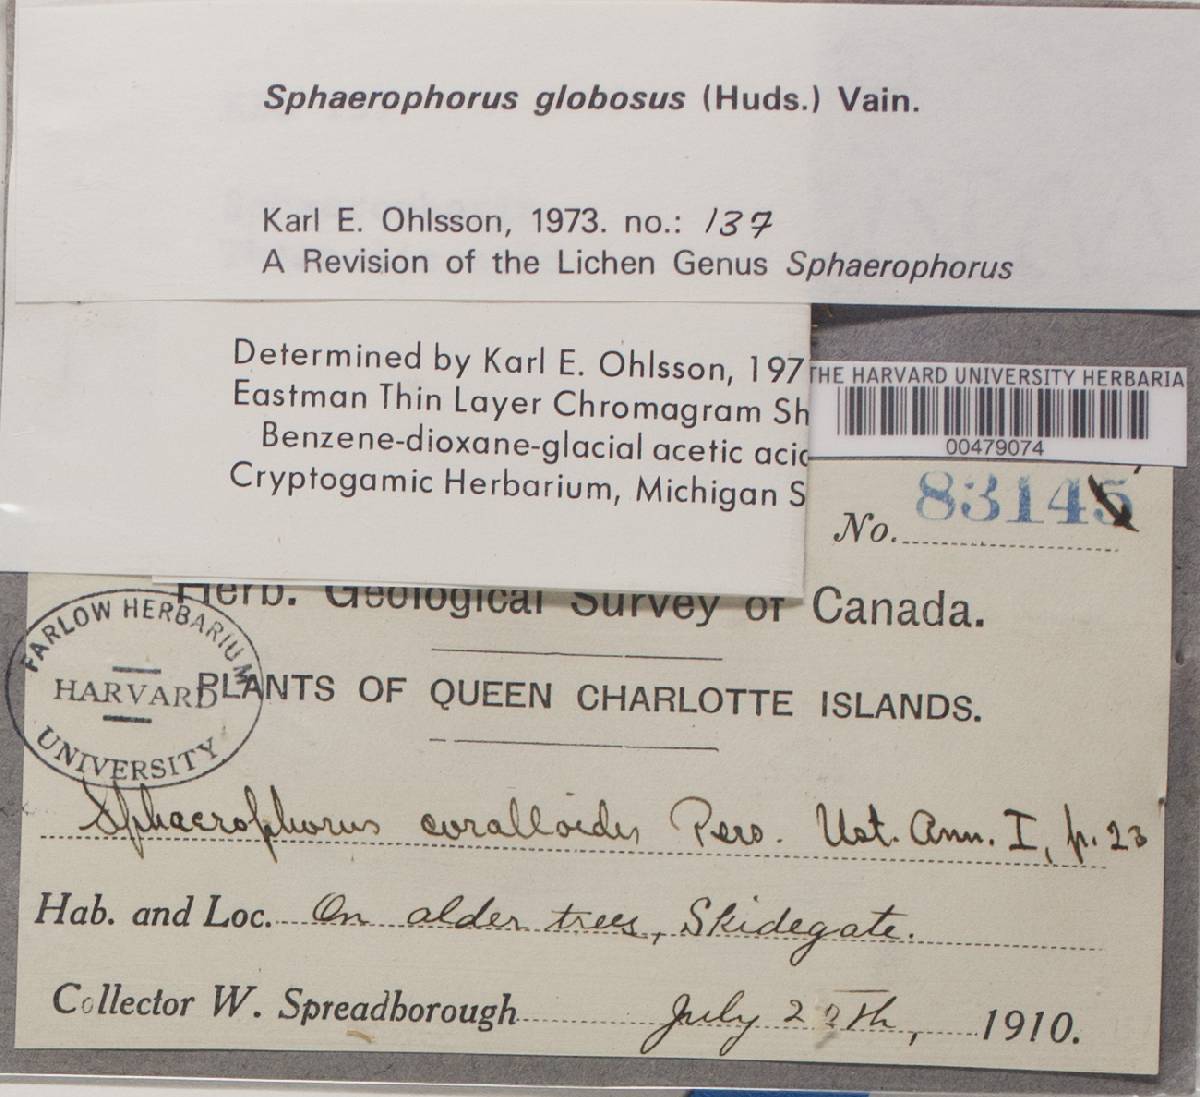 Sphaerophorus globosus (Huds.) Vain.
Karl E. Ohlsson, 1973. no.: 137
A Revision of the Lichen Genus Sphaerophorus
Determined by Karl E. Ohlsson, 197
Eastman Thin Layer Chromagram Sh
Benzene-dioxane-glacial acetic acid
Cryptogamic Herbarium, Michigan S
THE HARVARD UNIVERSITY HERBARIA
00479074
No. 83145
Herb. Geological Survey of Canada.
FARLOW HERBARIUM
HARVARD
UNIVERSITY
PLANTS OF QUEEN CHARLOTTE ISLANDS.
Sphaerophorus coralloides Pers. Ust. Ann. I, p. 23
Hab. and Loc. On alder trees, Skidegate.
Collector W. Spreadborough July 1910.